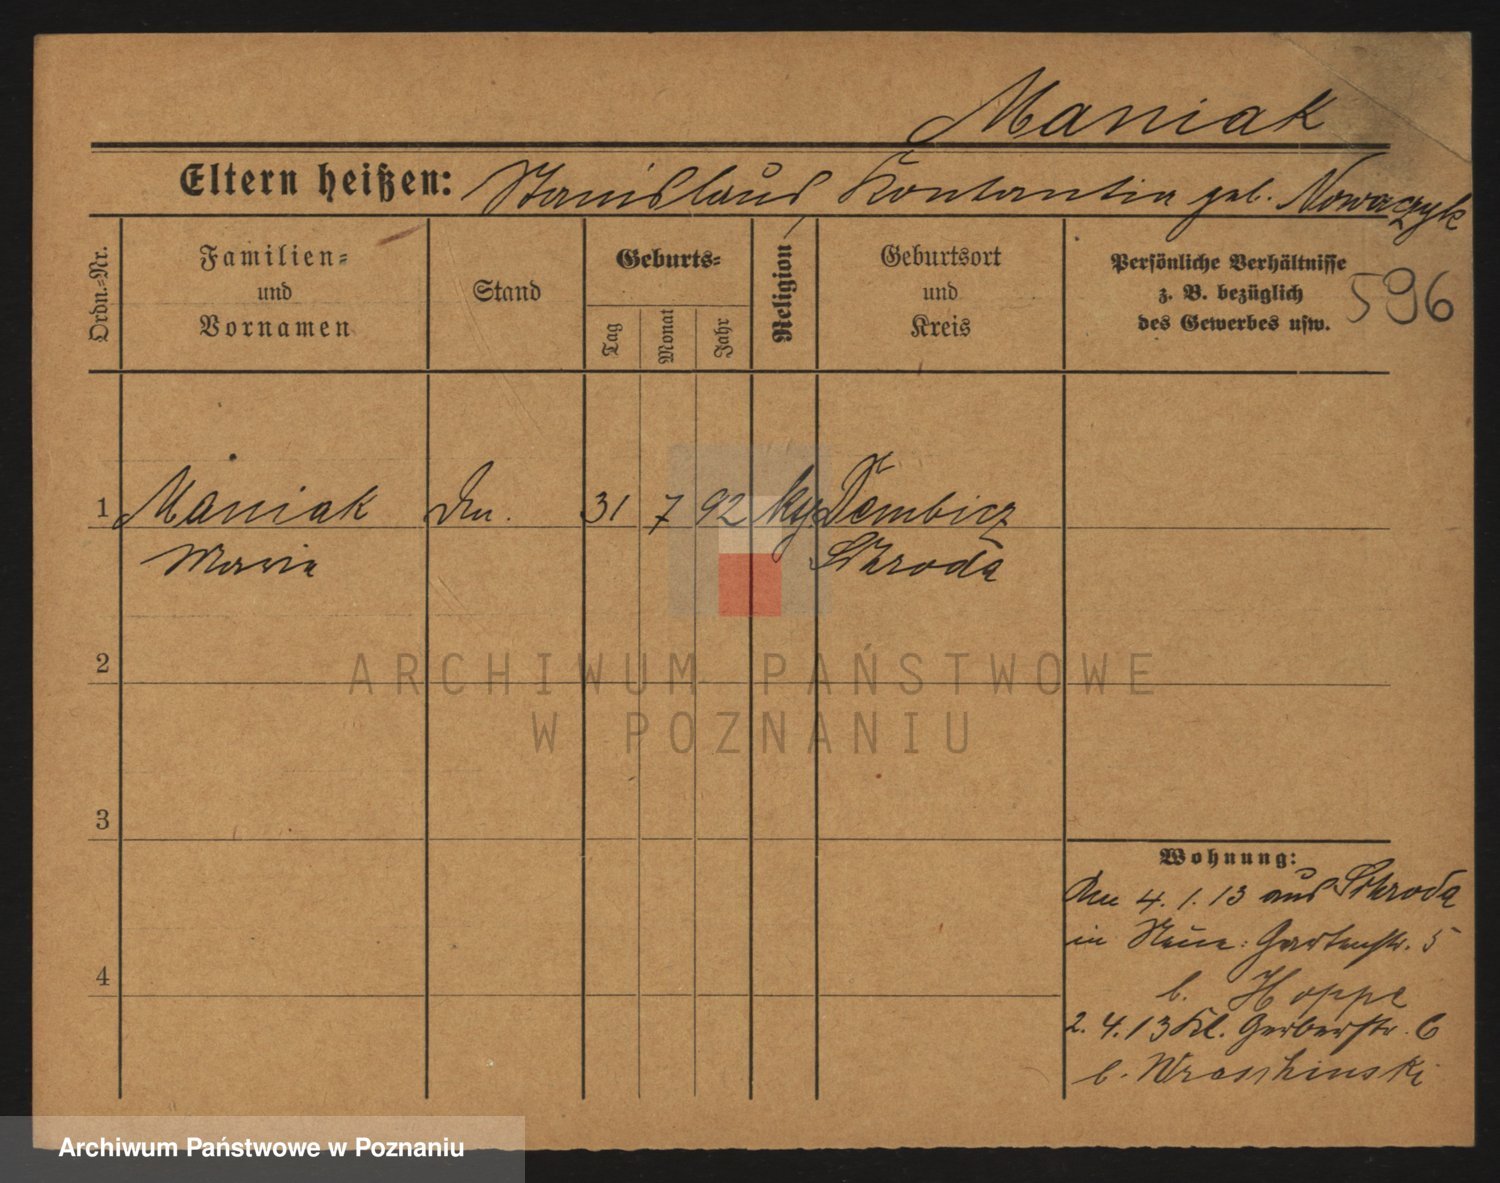 Maniak
Eltern heißen: Stanislaus Konstantia geb. Nowaczyk
Ordn.=Nr.
Familien=
und
Vornamen
Stand
Geburts=
Tag
Monat
Jahr
Religion
Geburtsort
und
Kreis
Persönliche Verhältnisse
z. B. bezüglich
des Gewerbes usw.
596
1 Maniak 31 7 92 Dembicz
Maria Schroda
2
3
4
Wohnung:
4. 1. 13 aus Schroda
in Gartenstr. 5
b. Hoppe
2. 4. 13 Kl. Gerberstr. 6
b.
ARCHIWUM PAŃSTWOWE
W POZNANIU
Archiwum Państwowe w Poznaniu